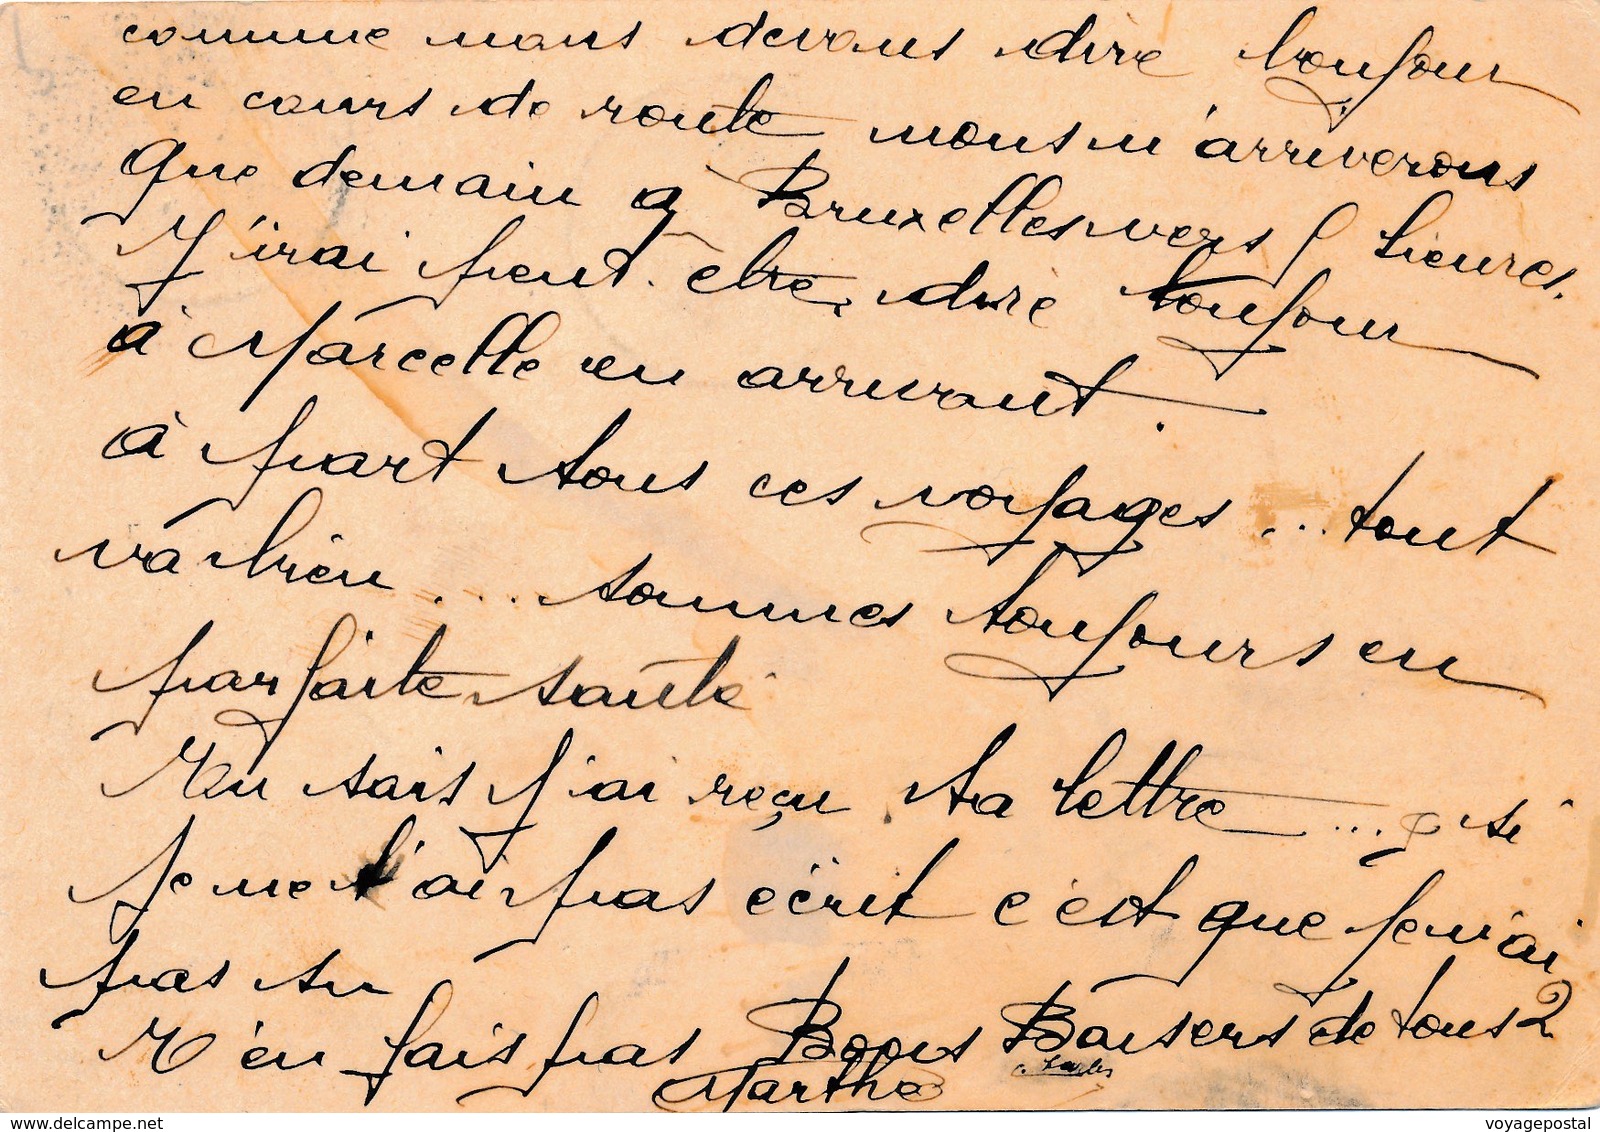 comme nous devons dire bonjour
en cours de route nous n'arriverons
que demain à Bruxelles vers 9 heures.
J'irai peut-être dire bonjour
à Marcelle en arrivant.
à part tous ces voyages ... tout
va bien ... sommes toujours en
parfaite santé
Tu sais j'ai reçu ta lettre ... si
je ne t'ai pas écrit c'est que je n'ai
pas su
N'en fais pas Bons Baisers de tous 2
Marthe
delcampe.net
voyagepostal